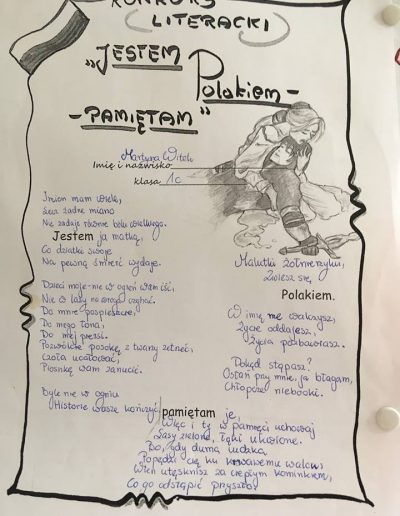 KONKURS
(LITERACKI)
„JESTEM
Polakiem –
– PAMIĘTAM”
Martyna
Imię i nazwisko
klasa 1c
Imion mam wiele,
Lecz żadne miano
Nie zadaje równie bólu wielkiego.
Jestem ja matką,
Co dziatki swoje
Na pewną śmierć wydaje.
Dzieci moje - nie w ogień wam iść,
Nie w lasy na wroga czyhać.
Do mnie pospieszcie,
Do mego łona,
Do mej piersi.
Pozwólcie posokę z twarzy zetrzeć,
Czoła ucałować,
Piosnkę wam zanucić.
Byle nie w ogniu
Historie wasze kończyć,
Malutki żołnierzyku,
Zwiesz się
Polakiem.
W imię me walczysz,
Życie oddajesz,
Życia pozbawiasz.
Dokąd stąpasz?
Ostań przy mnie, ja błagam,
Chłopcze niebogi.
pamiętam je,
Więc i ty w pamięci uchowaj
Lasy zielone, łąki ukwiecone.
Bo, gdy duma ludzka
Popędzi cię ku krwawemu walcu,
Wielu utęsknisz za ciepłym kominkiem,
Co go odstąpić przyszło.